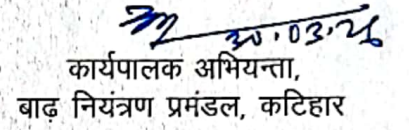 30.03.26
कार्यपालक अभियन्ता,
बाढ़ नियंत्रण प्रमंडल, कटिहार